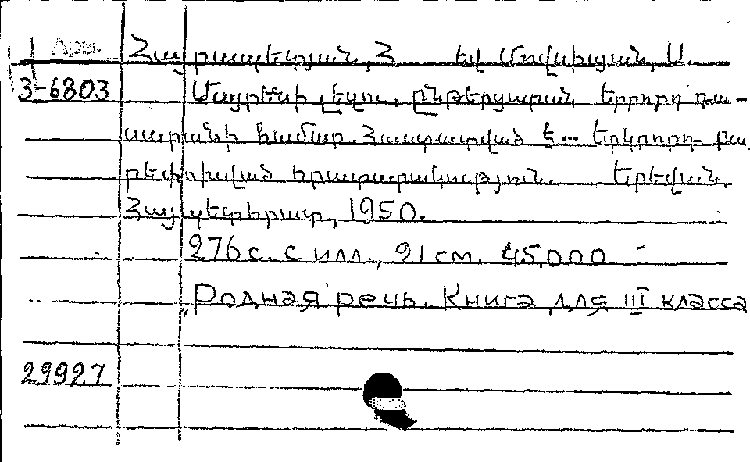 Арм.
Հայրապետյան, Հ. եվ Մովսիսյան, Ա.
3-6803 Մայրենի լեզու. ընթերցարան երրորդ դա-
սարանի համար. Հաստատված է... Երկրորդ բա-
րեփոխված հրատարակություն. Երեվան.
Հայպետհրատ, 1950.
276 с. с илл., 21 см. 45.000
„Родная речь. Книга для III класса
29927